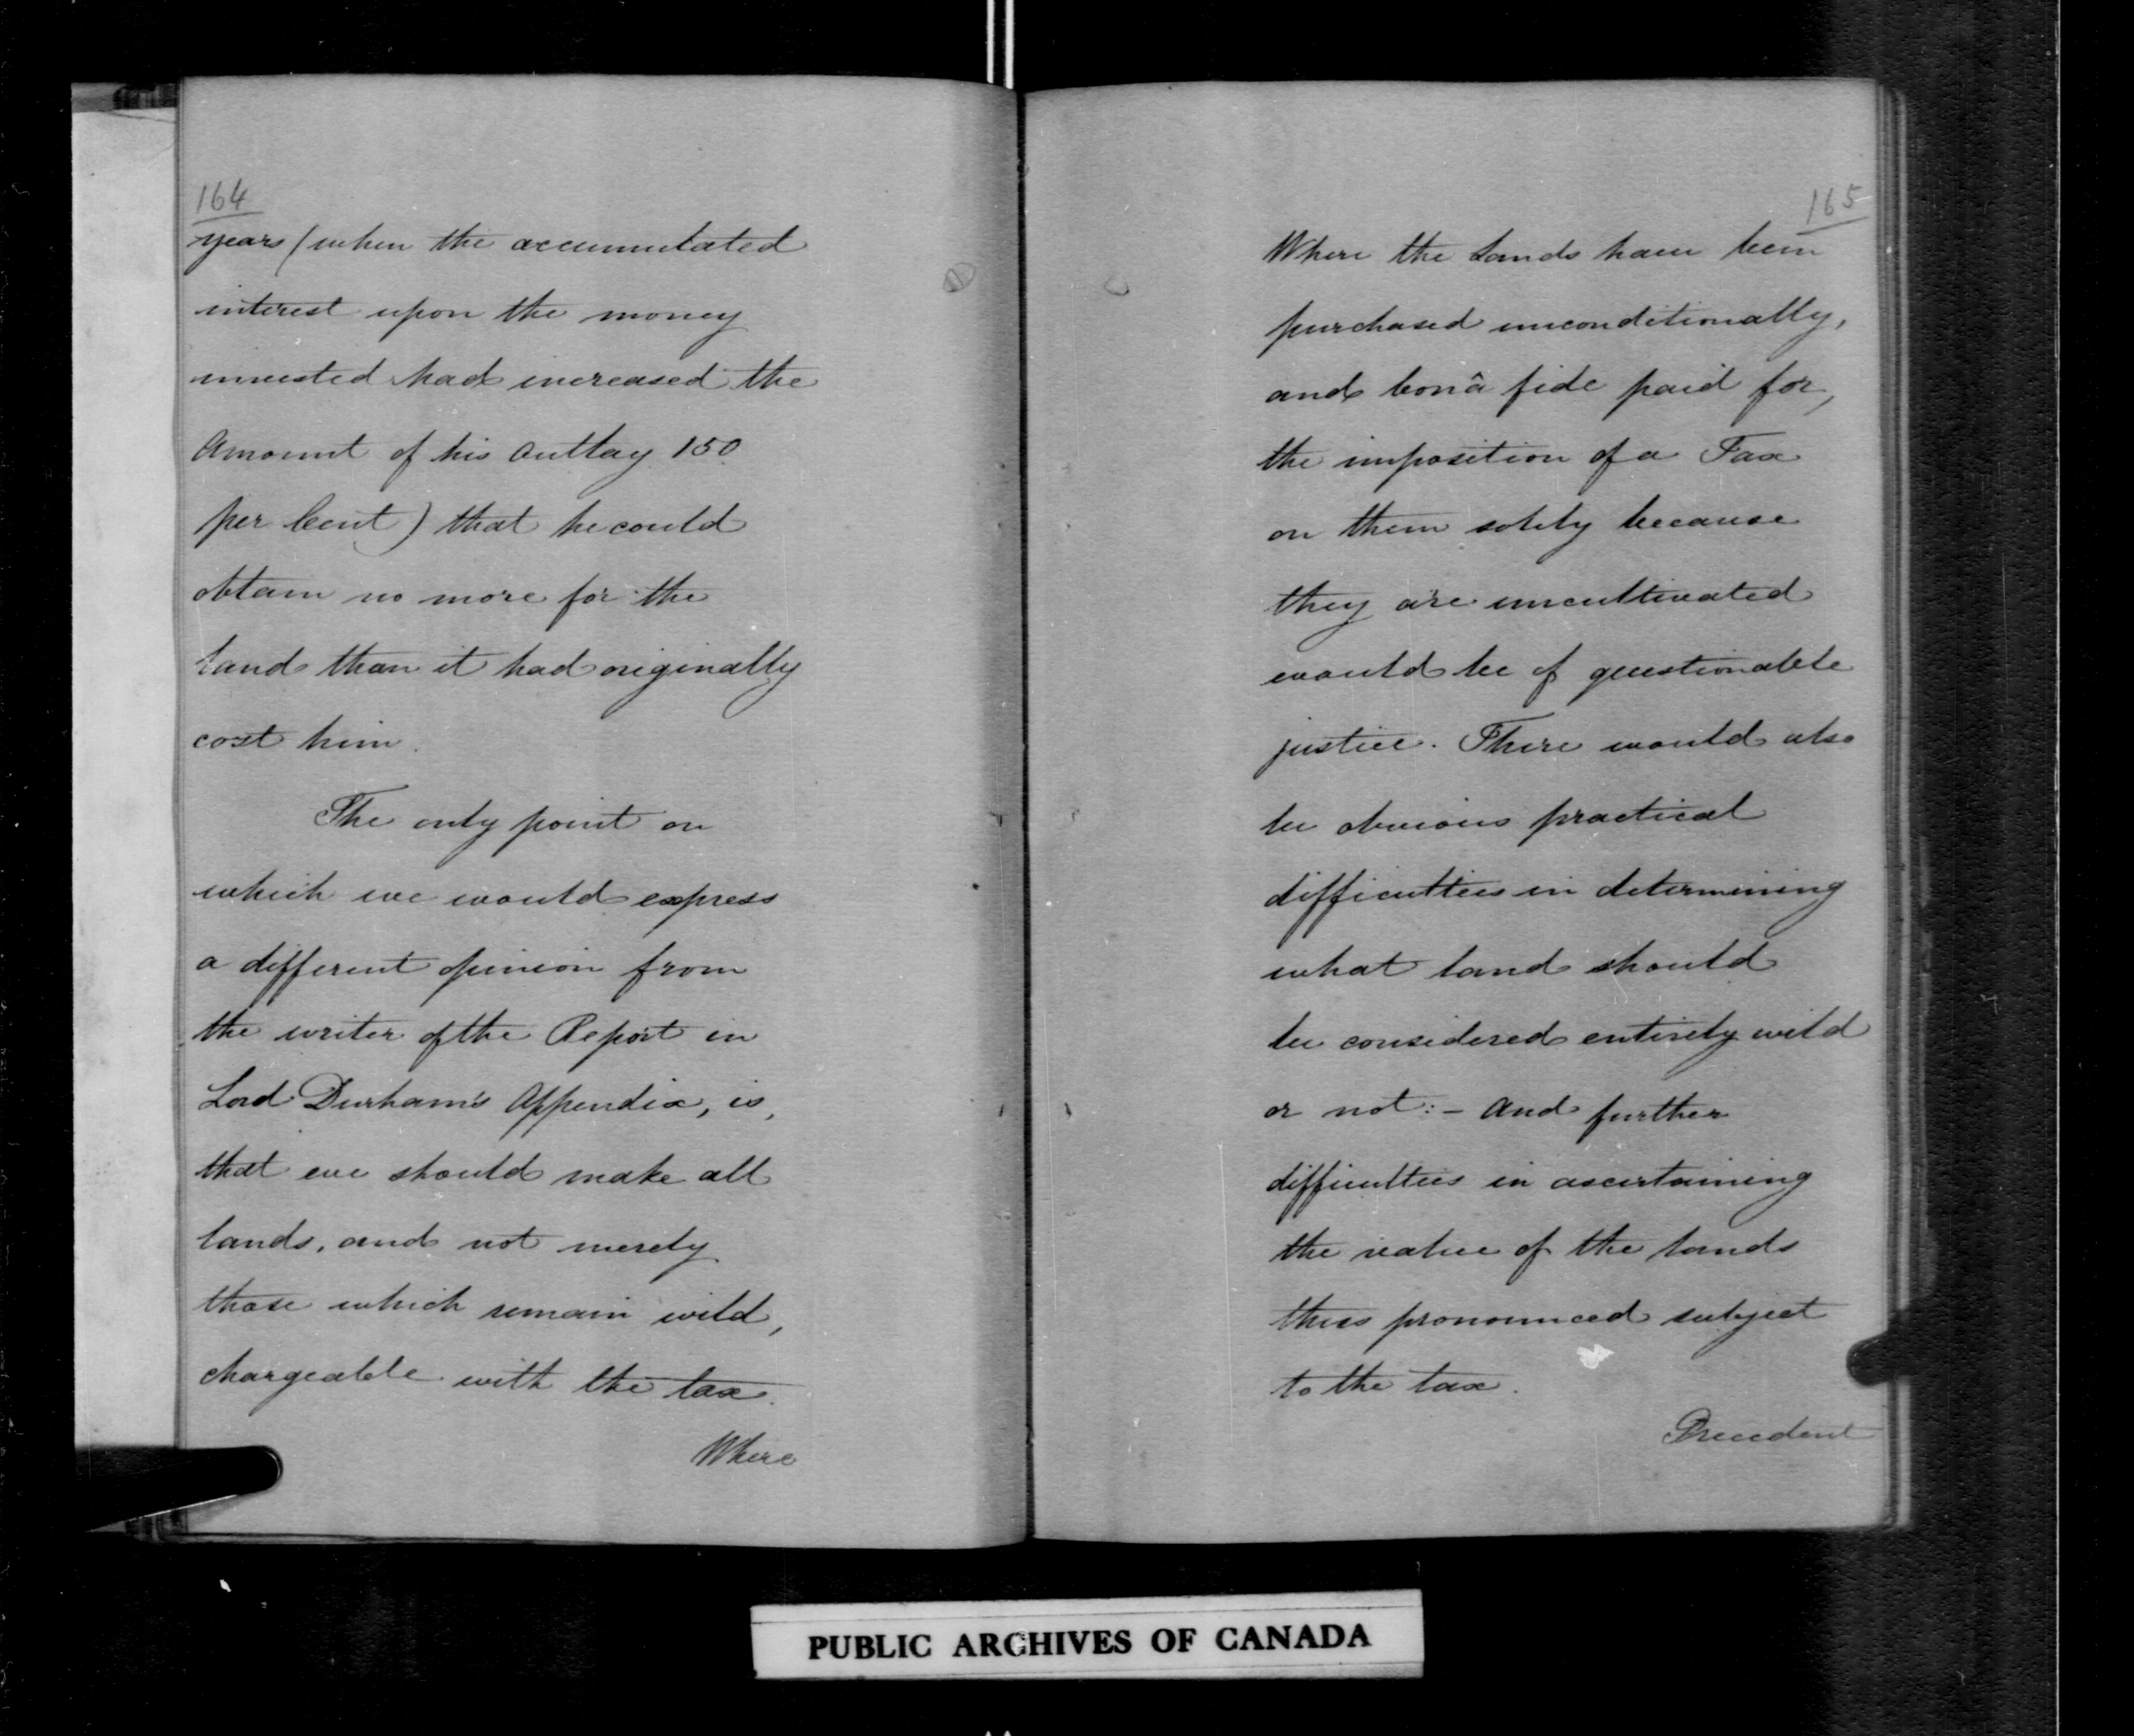 164
years (when the accumulated
interest upon the money
invested had increased the
amount of his outlay 150
per Cent) that he could
obtain no more for the
land than it had originally
cost him.
The only point on
which we would express
a different opinion from
the writer of the Report in
Lord Durham's Appendix, is,
that we should make all
lands, and not merely
those which remain wild,
chargeable with the tax.
Where
165
Where the Lands have been
purchased unconditionally,
and bonâ fide paid for,
the imposition of a Tax
on them solely because
they are uncultivated
would be of questionable
justice. There would also
be obvious practical
difficulties in determining
what land should
be considered entirely wild
or not:- and further
difficulties in ascertaining
the value of the lands
thus pronounced subject
to the tax.
Precedent
PUBLIC ARCHIVES OF CANADA